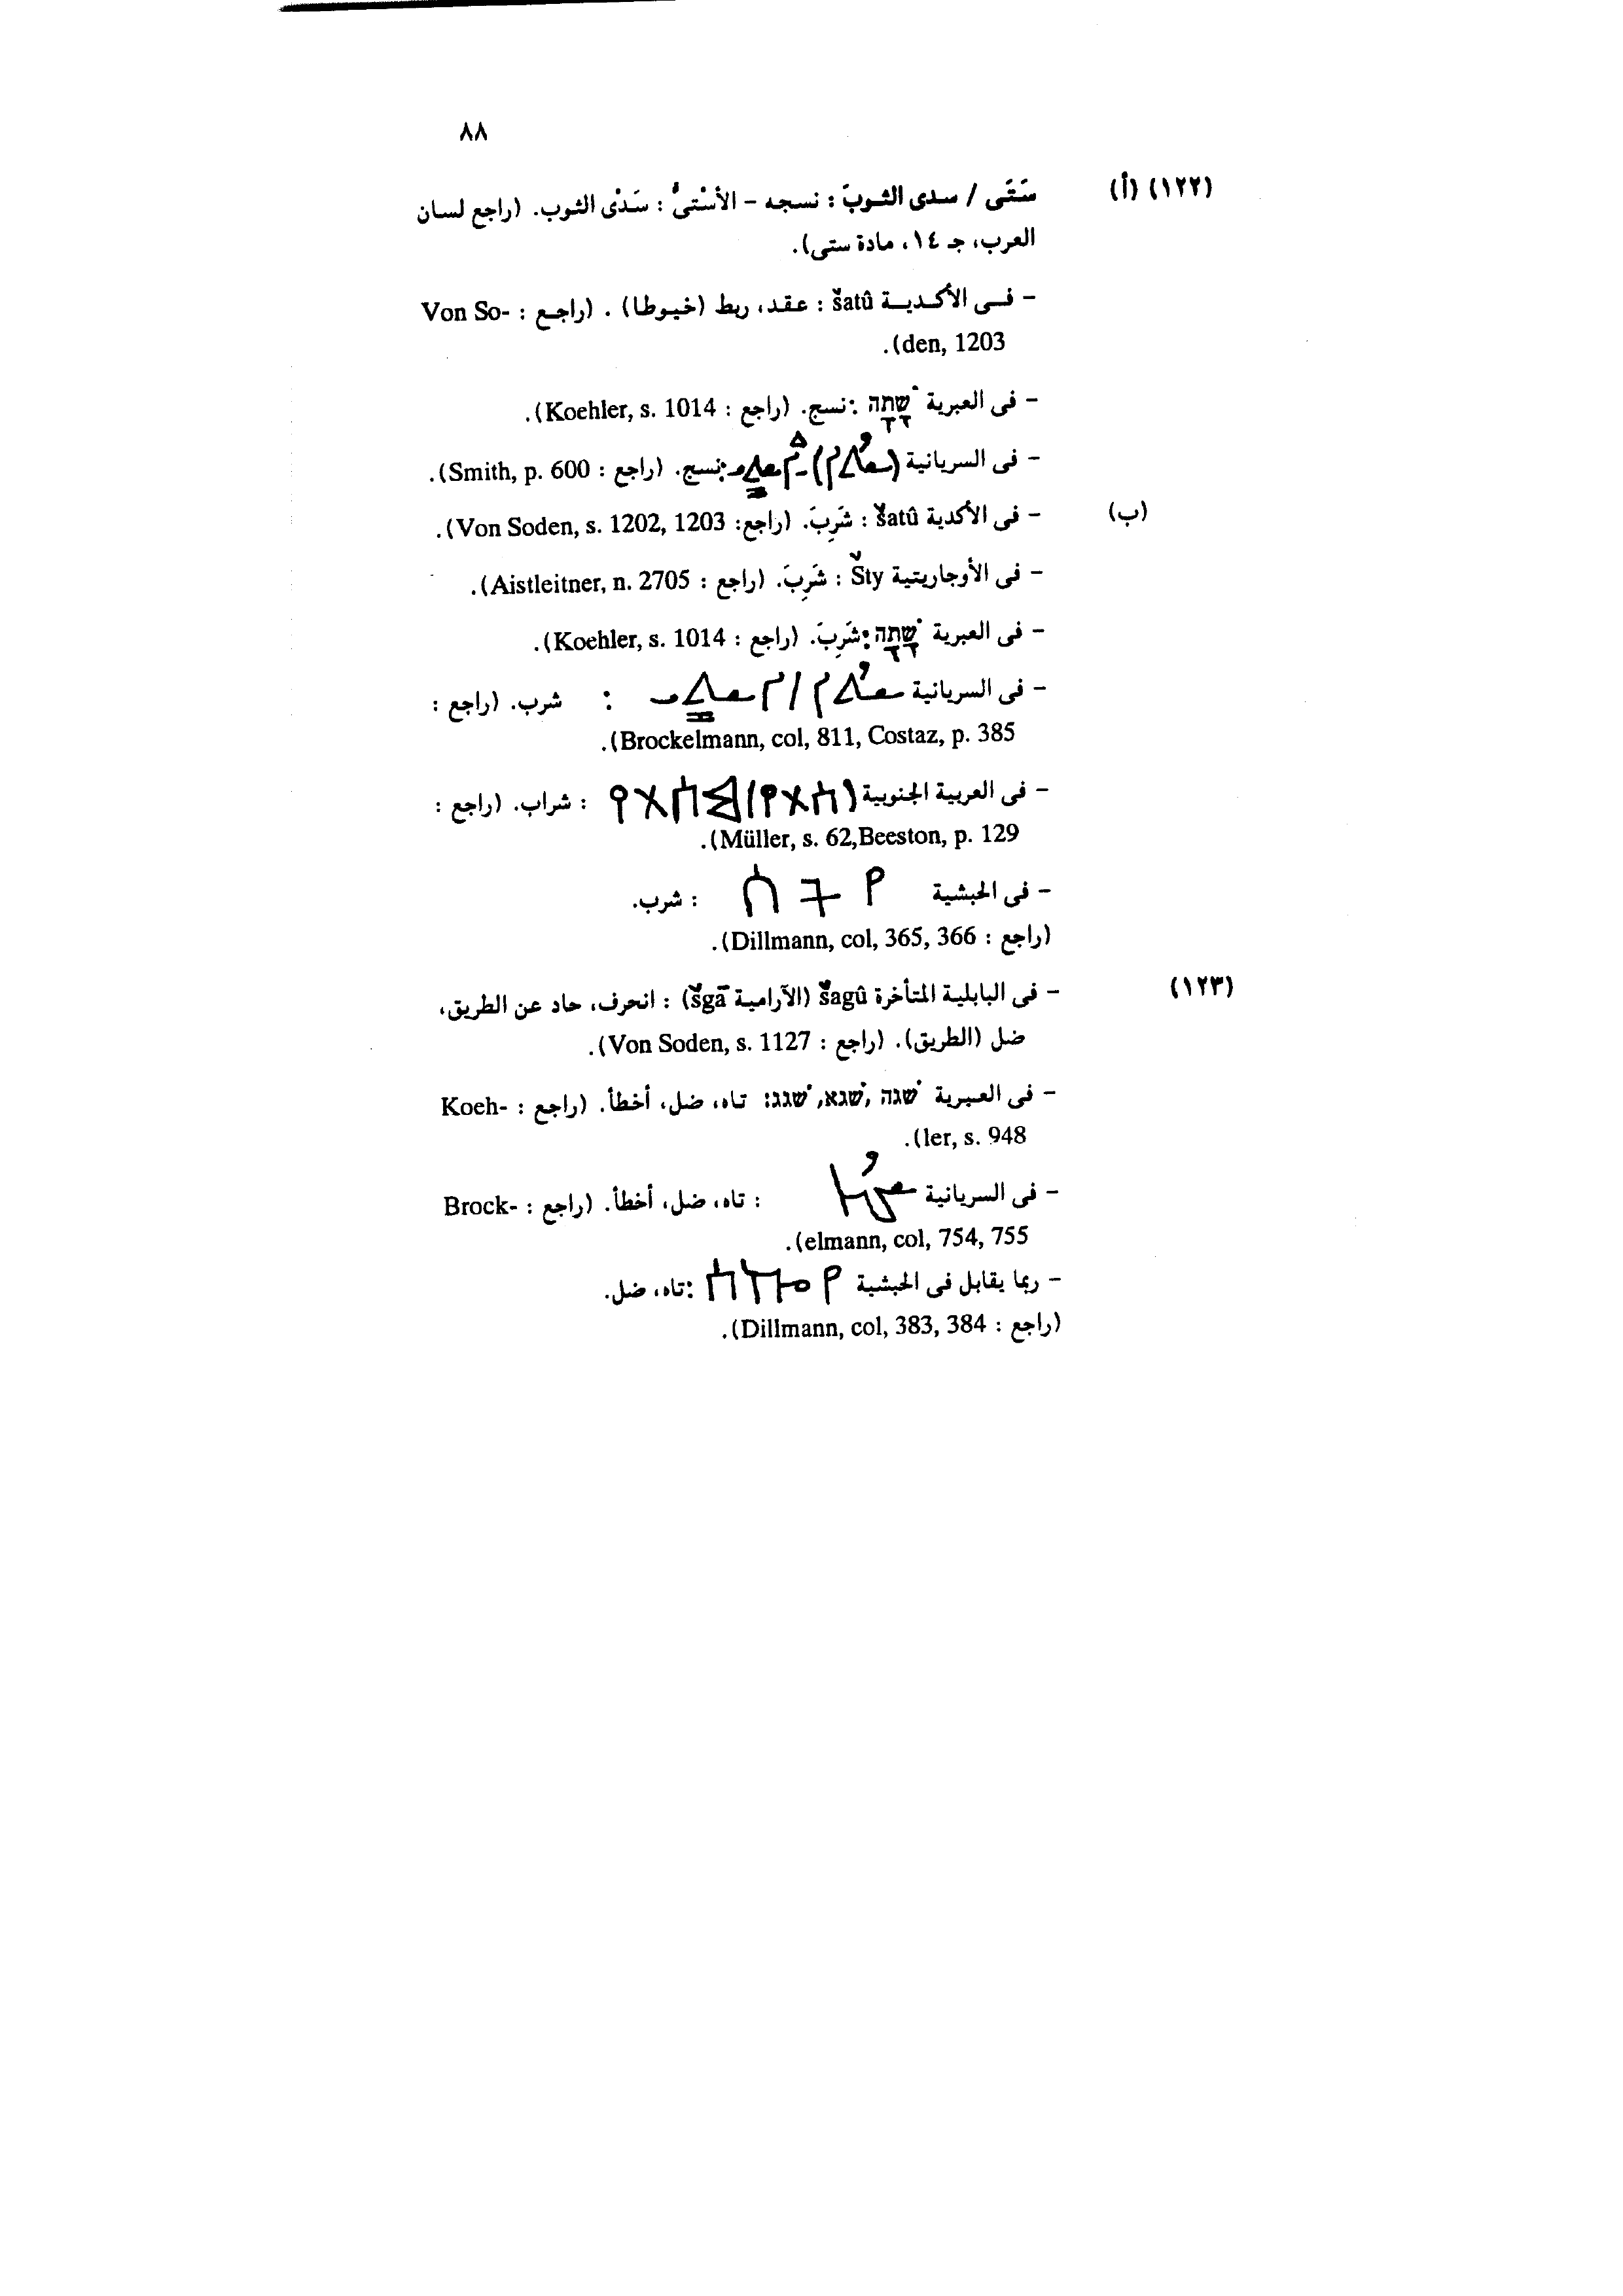 ٨٨
(١٢٢) (أ) سَتَى / سدى الثوبَ : نسجه - الأسْتىُّ : سَدْى الثوب. (راجع لسان
العرب، جـ ١٤، مادة ستى).
- فى الأكدية šatû : عقد، ربط (خيوطا) . (راجع : Von So-
den, 1203).
- فى العبرية שָׁתָה : نسج. (راجع : Koehler, s. 1014).
- فى السريانية : نسج. (راجع : Smith, p. 600).
(ب) - فى الأكدية šatû : شَرِبَ. (راجع: Von Soden, s. 1202, 1203).
- فى الأوجاريتية Šty : شَرِبَ. (راجع : Aistleitner, n. 2705).
- فى العبرية שָׁתָה : شَرِبَ. (راجع : Koehler, s. 1014).
- فى السريانية : شرب. (راجع :
Brockelmann, col, 811, Costaz, p. 385).
- فى العربية الجنوبية : شراب. (راجع :
Müller, s. 62,Beeston, p. 129).
- فى الحبشية : شرب.
(راجع : Dillmann, col, 365, 366).
(١٢٣) - فى البابلية المتأخرة šagû (الآرامية šgā) : انحرف، حاد عن الطريق،
ضل (الطريق). (راجع : Von Soden, s. 1127).
- فى العبرية שׁגה ,שׁגא, שׁגג: تاه، ضل، أخطأ. (راجع : Koeh-
ler, s. 948).
- فى السريانية : تاه، ضل، أخطأ. (راجع : Brock-
elmann, col, 754, 755).
- ربما يقابل فى الحبشية : تاه، ضل.
(راجع : Dillmann, col, 383, 384).